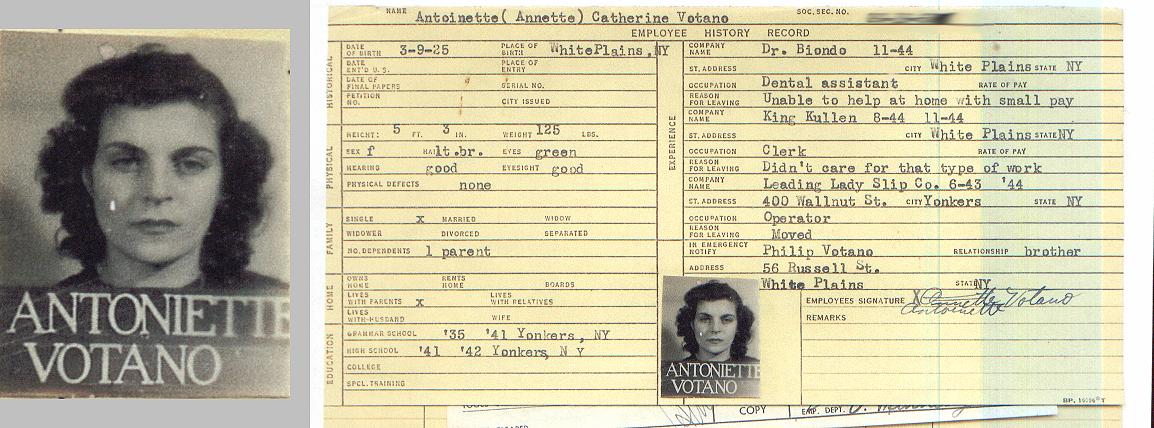 ANTONIETTE
VOTANO
NAME Antoinette( Annette) Catherine Votano SOC. SEC. NO.
EMPLOYEE HISTORY RECORD
HISTORICAL
DATE OF BIRTH 3-9-25 PLACE OF BIRTH WhitePlains,NY
DATE ENT'D U.S. PLACE OF ENTRY
DATE OF FINAL PAPERS SERIAL NO.
PETITION NO. CITY ISSUED
PHYSICAL
HEIGHT: 5 FT. 3 IN. WEIGHT 125 LBS.
SEX f HAIR lt.br. EYES green
HEARING good EYESIGHT good
PHYSICAL DEFECTS none
FAMILY
SINGLE X MARRIED WIDOW
WIDOWER DIVORCED SEPARATED
NO. DEPENDENTS 1 parent
HOME
OWNS HOME RENTS HOME BOARDS
LIVES WITH PARENTS X LIVES WITH RELATIVES
LIVES WITH-HUSBAND WIFE
EDUCATION
GRAMMAR SCHOOL '35 '41 Yonkers, NY
HIGH SCHOOL '41 '42 Yonkers, N Y
COLLEGE
SPCL. TRAINING
EXPERIENCE
COMPANY NAME Dr. Biondo 11-44
ST. ADDRESS CITY White Plains STATE NY
OCCUPATION Dental assistant RATE OF PAY
REASON FOR LEAVING Unable to help at home with small pay
COMPANY NAME King Kullen 8-44 11-44
ST. ADDRESS CITY White Plains STATE NY
OCCUPATION Clerk RATE OF PAY
REASON FOR LEAVING Didn't care for that type of work
COMPANY NAME Leading Lady Slip Co. 6-43 '44
ST. ADDRESS 400 Wallnut St. CITY Yonkers STATE NY
OCCUPATION Operator
REASON FOR LEAVING Moved
IN EMERGENCY NOTIFY Philip Votano RELATIONSHIP brother
ADDRESS 56 Russell St.
White Plains STATE NY
EMPLOYEES SIGNATURE X Annette Votano
Antoinette
REMARKS
ANTONIETTE
VOTANO
COPY EMP. DEPT.